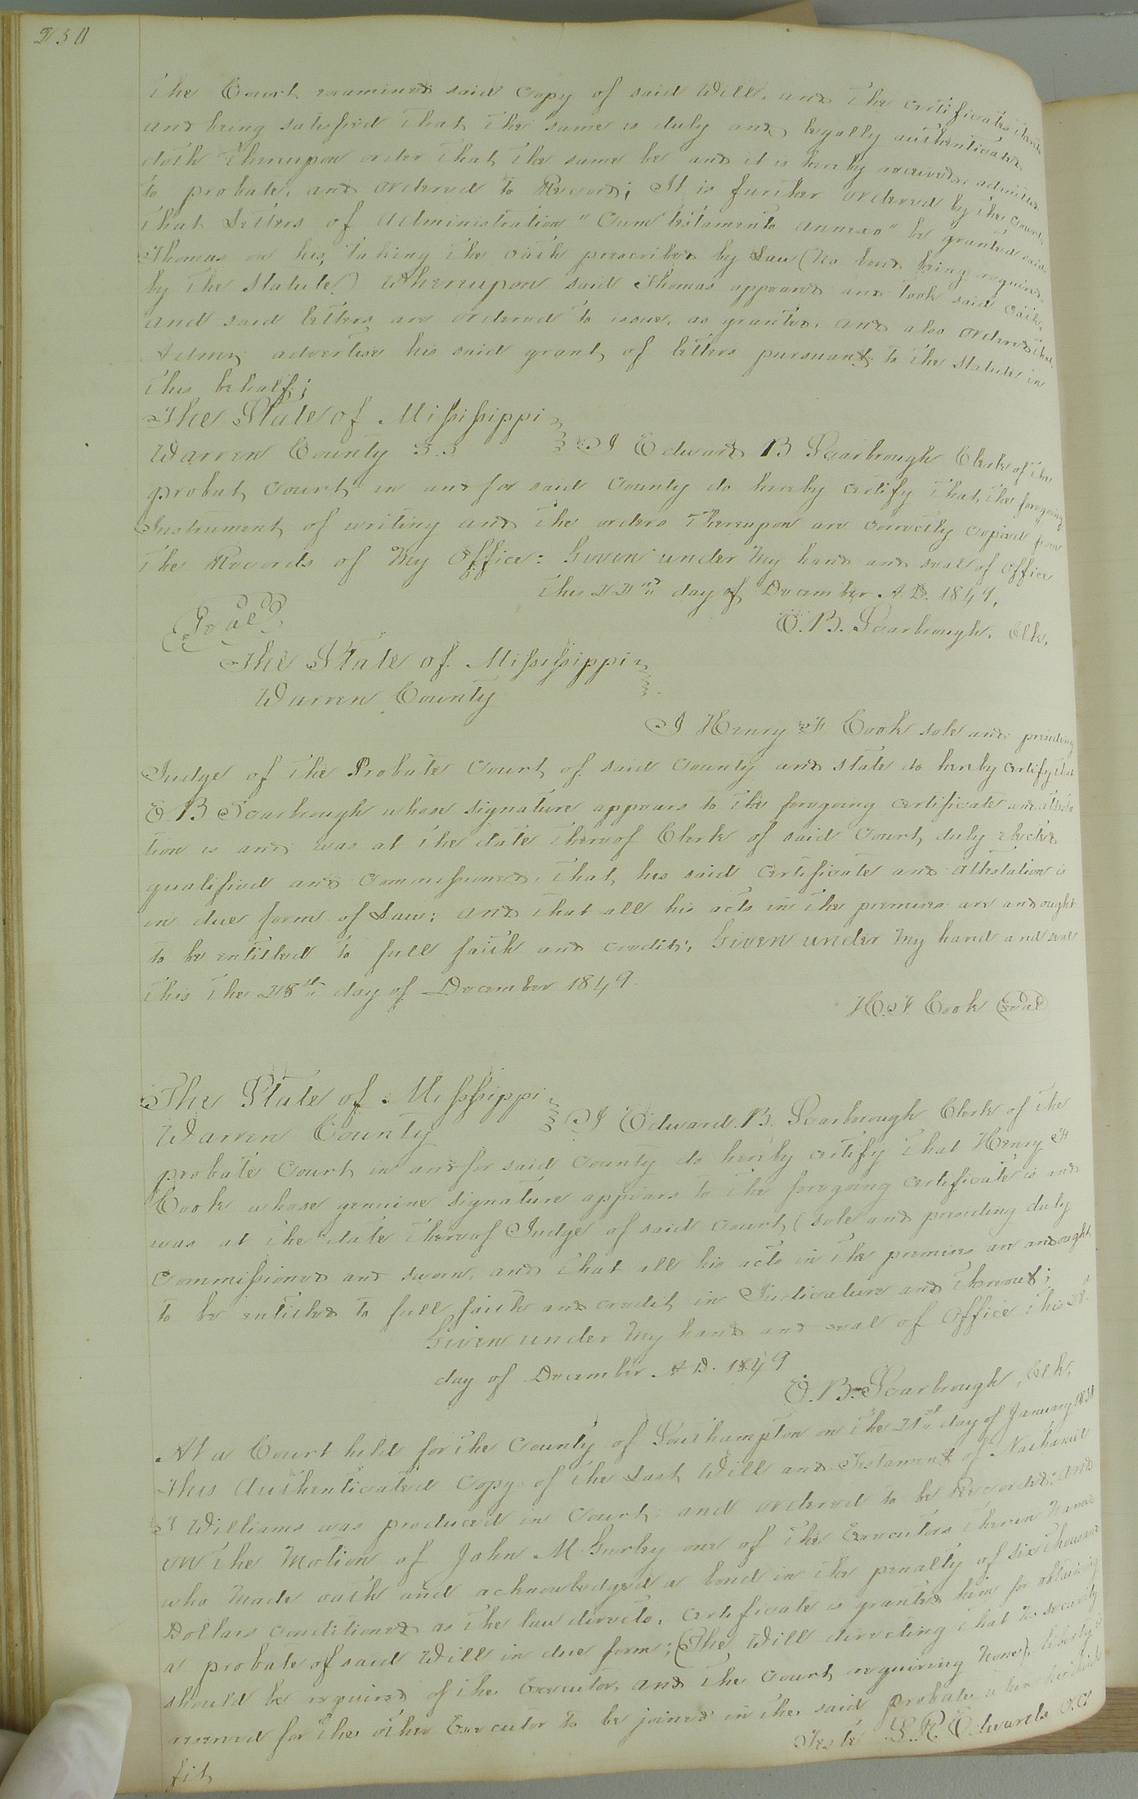 250
The Court examined said copy of said Will, and the certificates
and being satisfied that the same is duly and legally authenticated
doth thereupon order that the same be and it is hereby received admitted
to probate, and ordered to Record; It is further ordered by the Court
that Letters of Administration "Cum testamento annexo" be granted said
Thomas on his taking the oath prescribed by Law (No bond being required
by the Statute) Whereupon said Thomas appeared and took said oath,
and said letters are ordered to issue, as granted, and also ordered that
Admr advertise his said grant of letters pursuant to the Statute in
this behalf;
The State of Mississippi
Warren County S.S I Edward B Scarbrough Clerk of the
probat Court in and for said County do hereby certify that the foregoing
Instrument of writing and the orders Thereupon are correctly copied from
the Records of My Office: Given under My hand and seal of Office
this 22nd day of December A.D. 1849.
Seal E. B. Scarbrough, Clk.
The State of Mississippi
Warren County
I Henry F Cook sole and presiding
Judge of the Probate Court of said County and State do hereby certify that
E. B Scarbrough whose signature appears to the foregoing certificate and attesta
tion is and was at the date thereof Clerk of said Court duly elected
qualified and Commissioned, that his said certificate and attestation is
in due form of Law; and that all his acts in the premises are and ought
to be entitled to full faith and credit; Given under My hand and seal
this the 28th day of December 1849.
H. F. Cook Seal
The State of Mississippi
Warren County I Edward. B. Scarbrough Clerk of the
probate Court in and for said County do hereby certify that Henry F
Cook whose genuine signature appears to the foregoing certificate is and
was at the date thereof Judge of said Court (sole and presiding duly
Commissioned and sworn, and that all his acts in the premises are and ought
to be entitled to full faith and credit in Judicature and thereout;
Given under My hand and seal of Office this
day of December A D. 1849
E. B. Scarbrough, Clk.
At a Court held for the County of Southampton on the 21st day of January
This Authenticated Copy of the Last Will and Testament of Nathaniel
J Williams was produced in Court and ordered to be Recorded; And
on the Motion of John M Gurley one of the Executors therein Named
who Made oath and acknowledged a bond in the penalty of Six thousand
Dollars Conditioned as the law directs, certificate is granted him for obtaining
a probate of said Will in due form; (The Will directing that no security
should be required of the Executor, and the Court requiring None), liberty is
reserved for the other Executor to be joined in the said probate when he think
fit,
Teste L. R. Edwards C.C